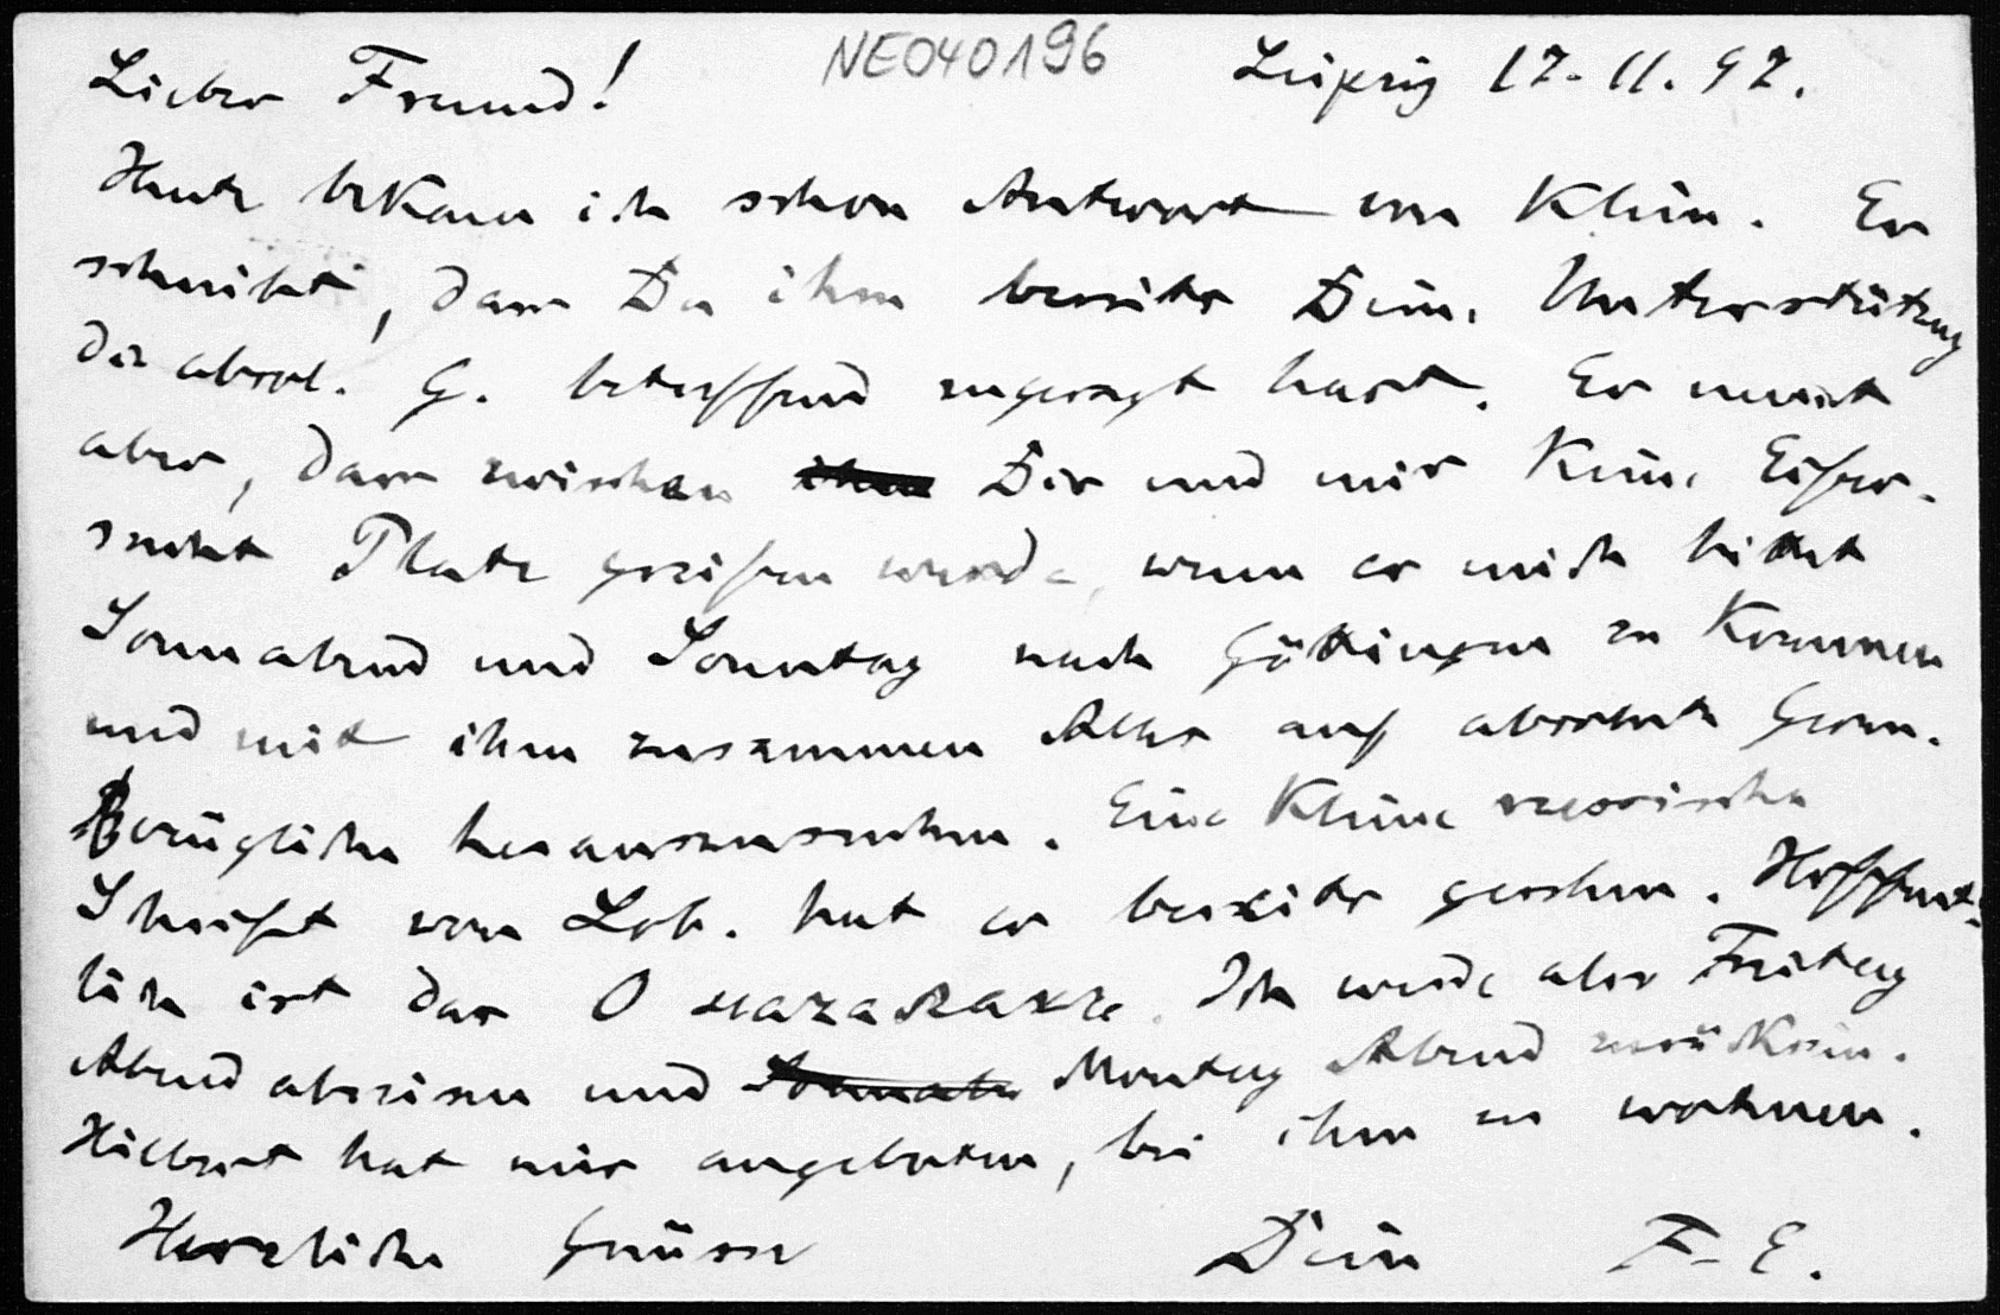 NE040196
Lieber Freund! Leipzig 17. 11. 97.
Heute bekam ich schon Antwort von Klein. Er
schreibt, dass Du ihm bereits Deine Unterstützung
die absol. G. betreffend zugesagt hast. Er meint
aber, dass zwischen ihm Dir und mir keine Eifer-
sucht Platz greifen werde, wenn er mich bittet
Sonnabend und Sonntag nach Göttingen zu kommen
und mit ihm zusammen Alles auf absolute Geom.
Bezügliche herauszusuchen. Eine kleine russische
Schrift von Lob. hat er bereits gesehen. Hoffent-
lich ist das О началахъ. Ich werde also Freitag
Abend abreisen und Montag Abend zurück sein.
Hilbert hat mir angeboten, bei ihm zu wohnen.
Herzliche Grüsse Dein F. E.